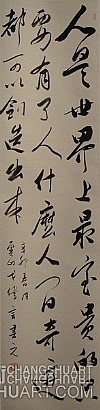 人是世界上最宝贵的只
要有了人什麼人间奇迹
都可以創造出来
辛卯春月
CHANGSHUART